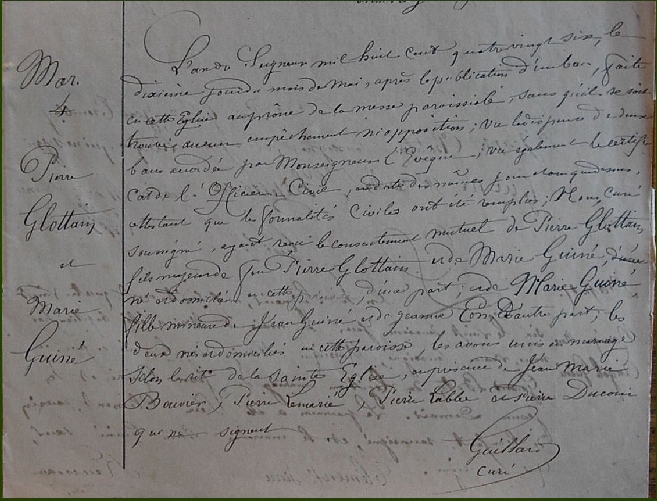 Mar.
4
Pierre
Glottain
et
Marie
Guiné
L'an du Seigneur mil huit cent quatre vingt six, le
dixième jour du mois de Mai, après la publication d'un ban, faite
en cette Eglise au prône de la messe paroissiale, sans qu'il se soit
trouvé aucun empêchement ni opposition; vu la dispense de deux
bans accordée par Monseigneur l'Evêque; vu également le certifi
cat de l'Officier Civil, en date du
attestant que les formalités Civiles ont été remplies; Nous, curé
soussigné, ayant reçu le consentement mutuel de Pierre Glottain
fils majeur de feu Pierre Glottain et de Marie Guiné,
né et domicilié en cette d'une part, et de Marie Guiné
fille mineure de Jean Guiné et de Jeanne d'autre part, les
deux nés et domiciliés en cette paroisse, les avons unis en mariage
selon le rit de la Sainte Eglise, en présence de Jean Marie
Bouvier, Pierre Lemarié, Pierre Lablé et Pierre
que ne signent
Guillard
curé